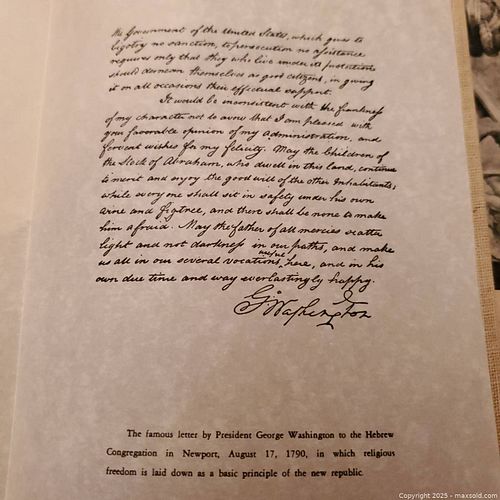 the Government of the United States, which gives to
bigotry no sanction, to persecution no assistance
requires only that they who live under its protection
should demean themselves as good citizens, in giving
it on all occasions their effectual support.
It would be inconsistent with the frankness
of my character not to avow that I am pleased with
your favorable opinion of my administration, and
fervent wishes for my felicity. May the Children of
the Stock of Abraham, who dwell in this land, continue
to merit and enjoy the good will of the other Inhabitants;
while every one shall sit in safety under his own
vine and figtree, and there shall be none to make
him afraid. May the father of all mercies scatter
light and not darkness in our paths, and make
us all in our several vocations useful here, and in his
own due time and way everlastingly happy.
G. Washington
The famous letter by President George Washington to the Hebrew
Congregation in Newport, August 17, 1790, in which religious
freedom is laid down as a basic principle of the new republic
Copyright 2025 - maxsold.com